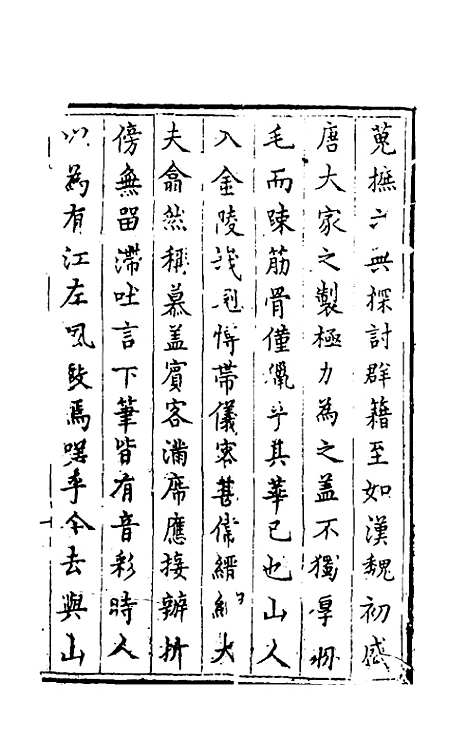 蒐摭亡無探討群籍至如漢魏初盛
唐大家之製極力為之盖不獨厚
毛而踈筋骨僅獵乎其華已也山人
入金陵義冠博帯儀容甚偉縉紳大
夫翕然稱慕盖賓客滿席應接辦析
傍無留滯吐言下筆皆有音彩時人
以為有江左風致焉嗟乎今去與山